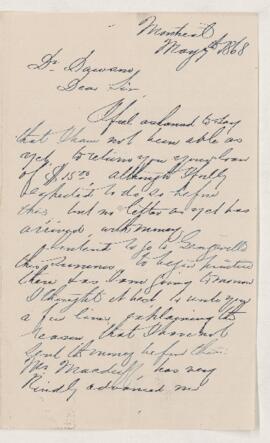 Montreal
May 7th 1868
Dr Dawson,
Dear Sir
I feel ashamed to say
that I have not been able as
yet, to return you your loan
of $15.00 although I fully
expected to do so before
this, but no letter as yet has
arrived with money
I intend to go to
this summer to begin
there was I am going to morrow
I thought it best to write you
a few lines explaining the
reason that I have not
sent the money before this.
Mr has very
kindly advanced me